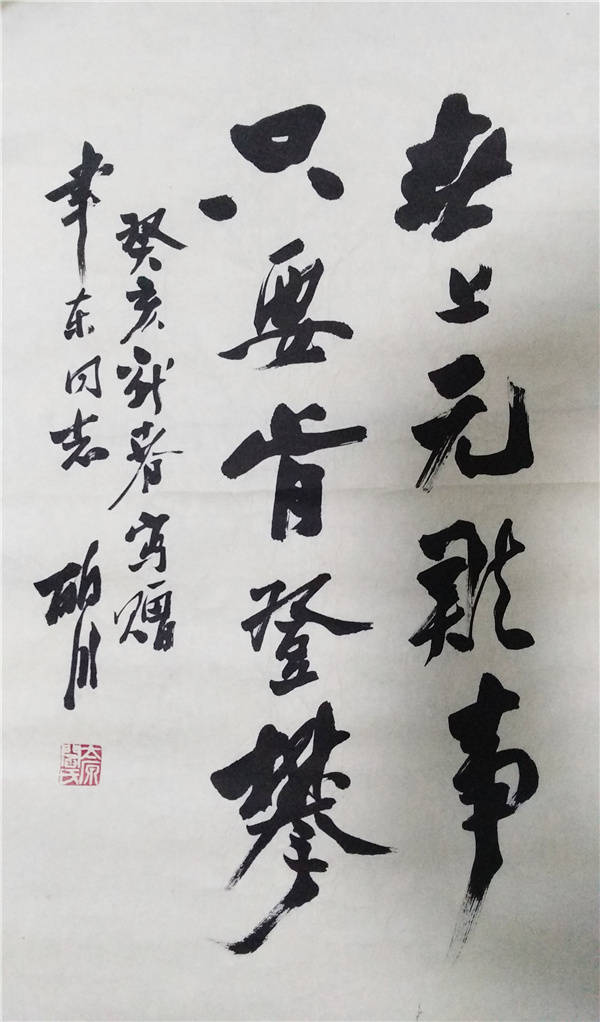 世上无难事
只要肯登攀
癸亥新春写赠
东同志